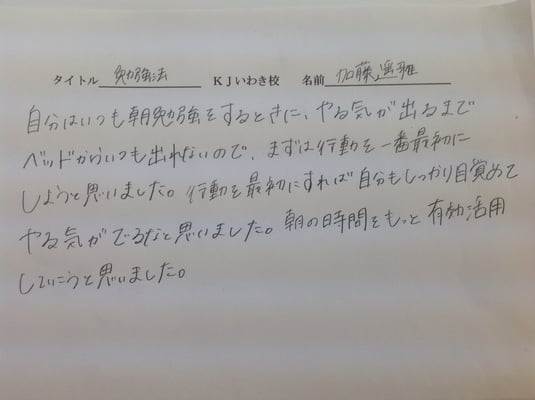 タイトル 勉強法 KJいわき校 名前 加藤遥雅
自分はいつも朝勉強をするときに、やる気が出るまで
ベッドからいつも出れないので、まずは行動を一番最初に
しようと思いました。行動を最初にすれば自分もしっかり目覚めて
やる気がでるなと思いました。朝の時間をもっと有効活用
していこうと思いました。